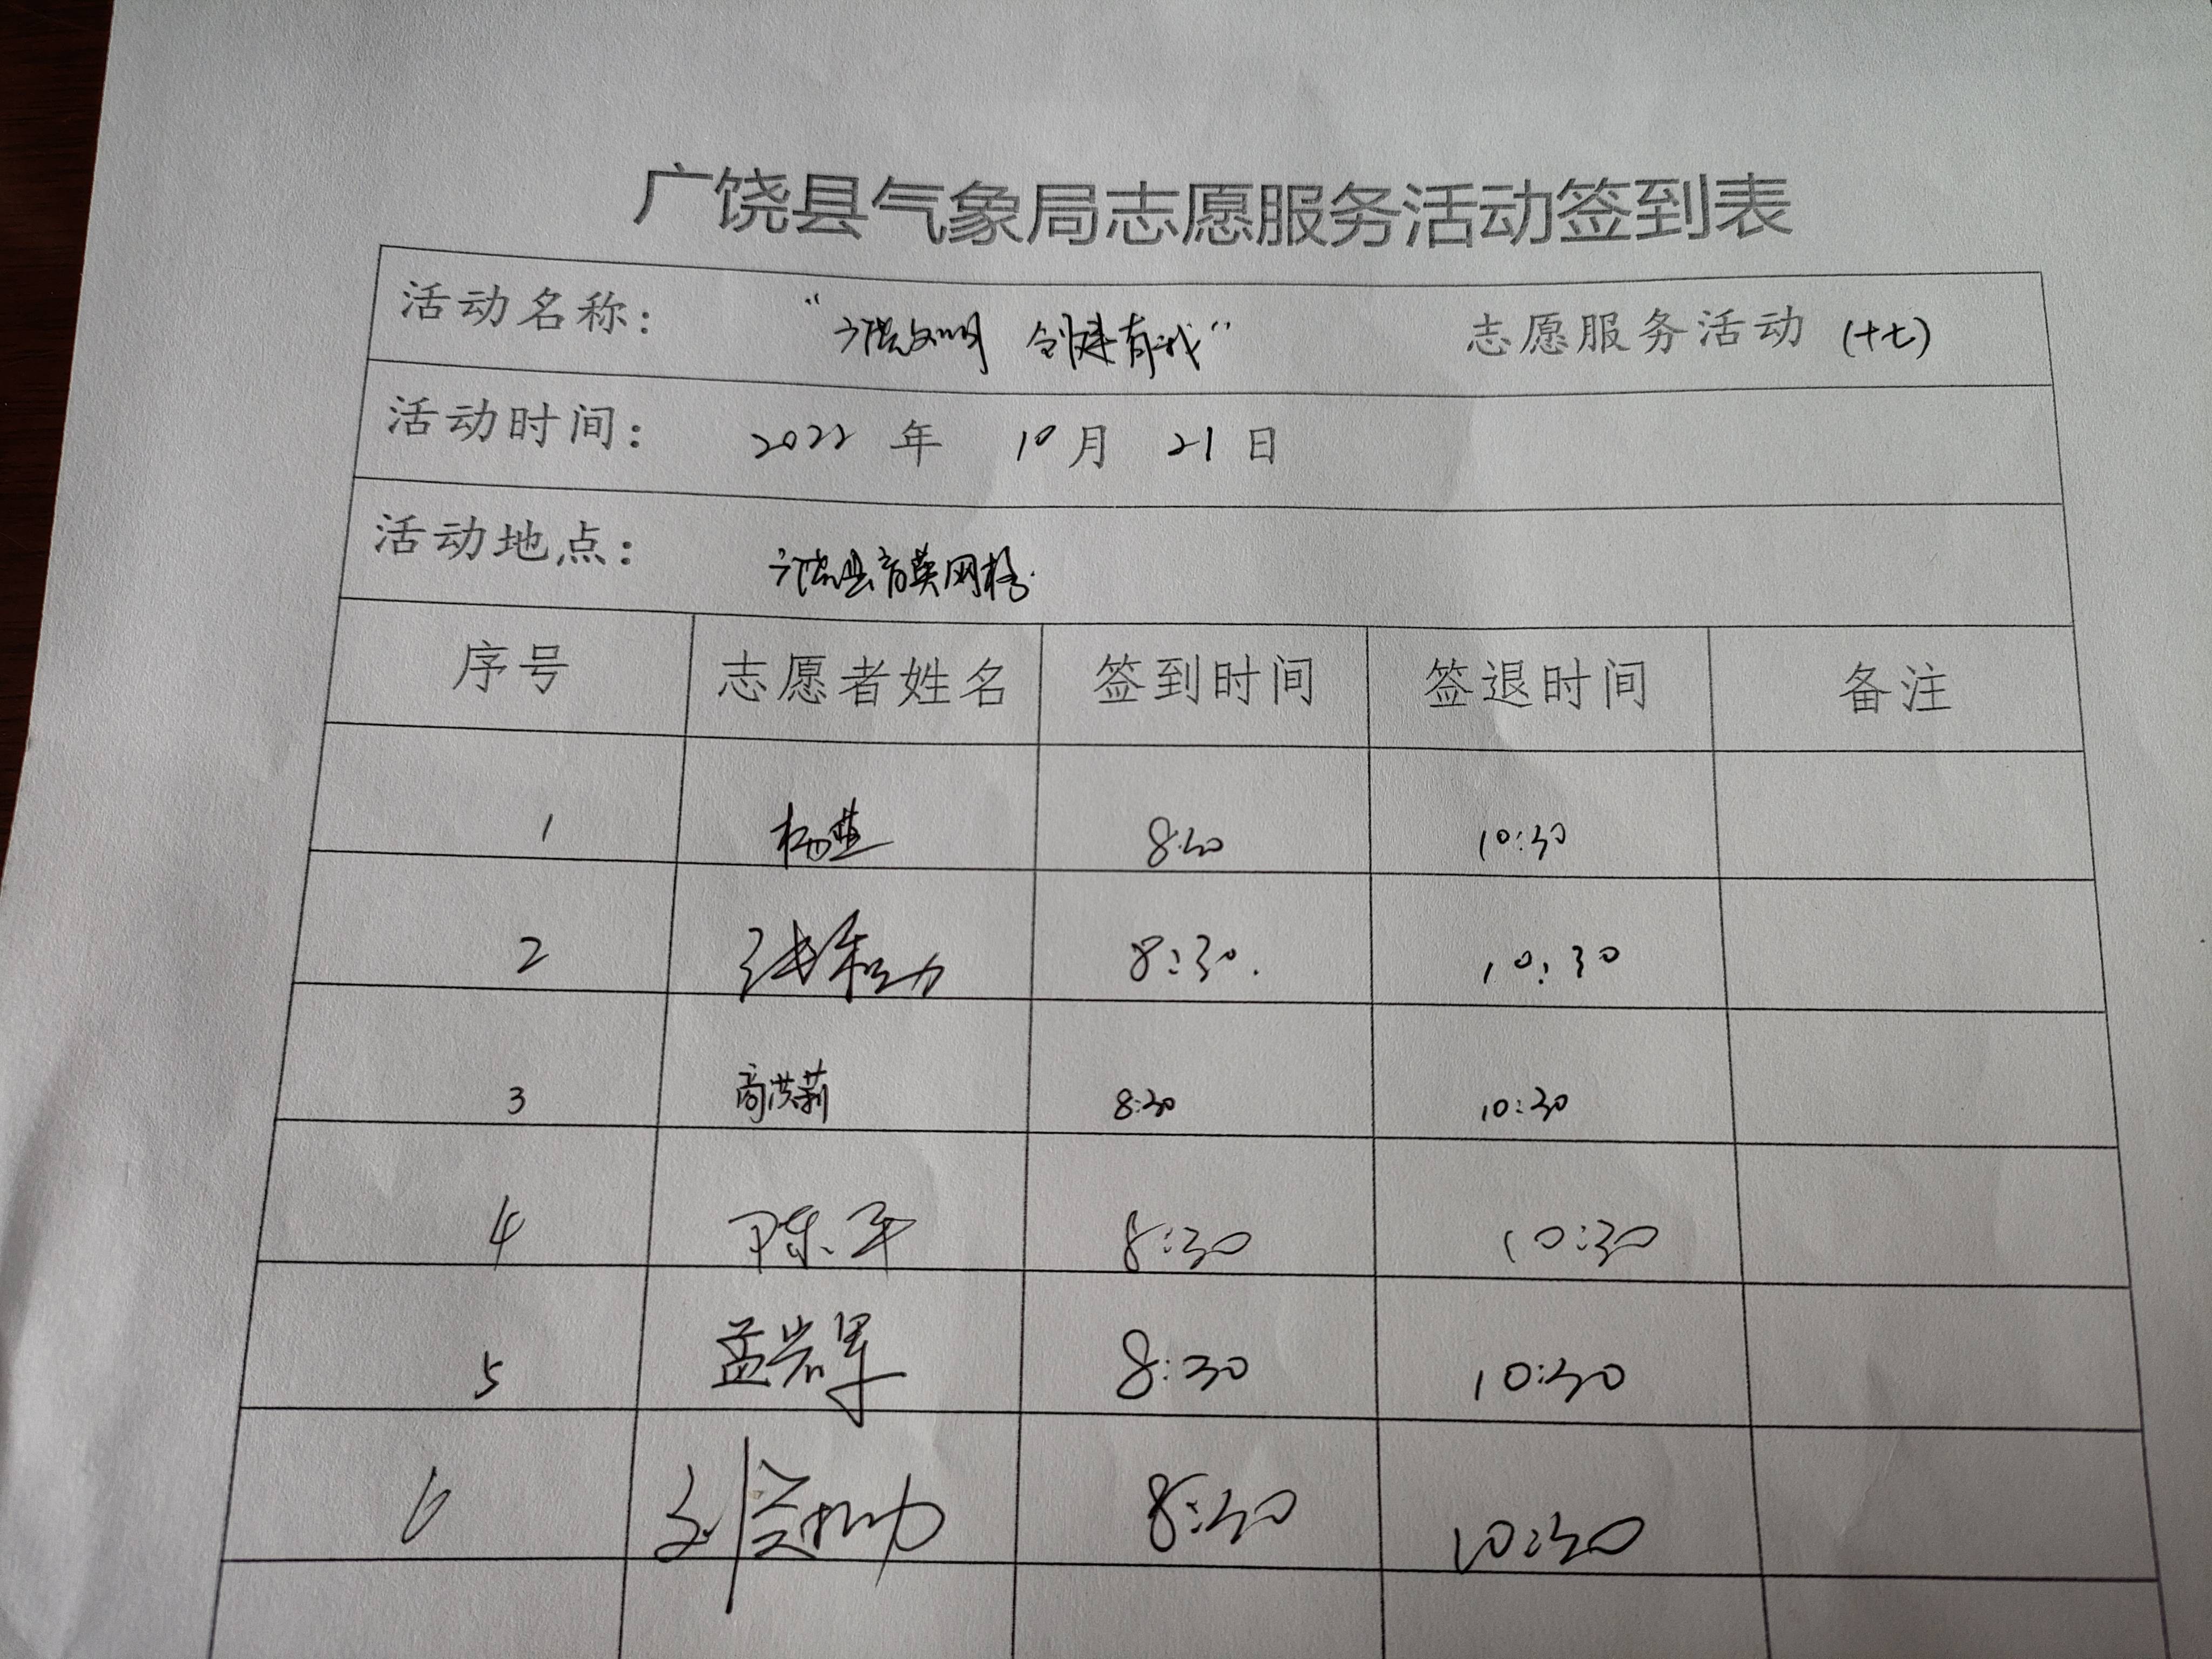 广饶县气象局志愿服务活动签到表
活动名称： “广饶文明 创建有我” 志愿服务活动 (十七)
活动时间： 2022 年 10 月 21 日
活动地点： 广饶县育英网格.
序号 志愿者姓名 签到时间 签退时间 备注
1 杨燕 8:30 10:30
2 8:30. 10:30
3 商洪莉 8:30 10:30
4 陈平 8:30 10:30
5 孟岩军 8:30 10:30
6 8:30 10:30